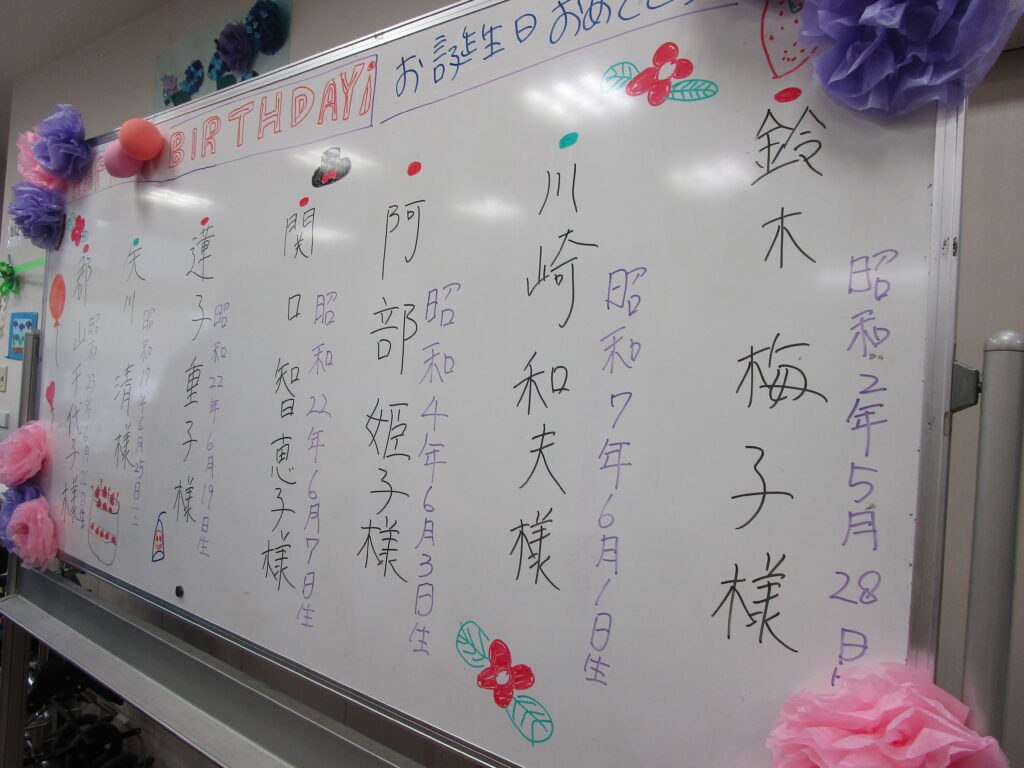 BIRTHDAY!
お誕生日おめでとう
鈴木 梅子様
昭和2年5月28日
川崎 和夫様
昭和7年6月1日生
阿部 姫子様
昭和4年6月3日生
関口 智恵子様
昭和22年6月7日生
蓮子 重子様
昭和22年6月19日生
矢川 清様
昭和17年6月25日生
山千代子様
昭和23年6月